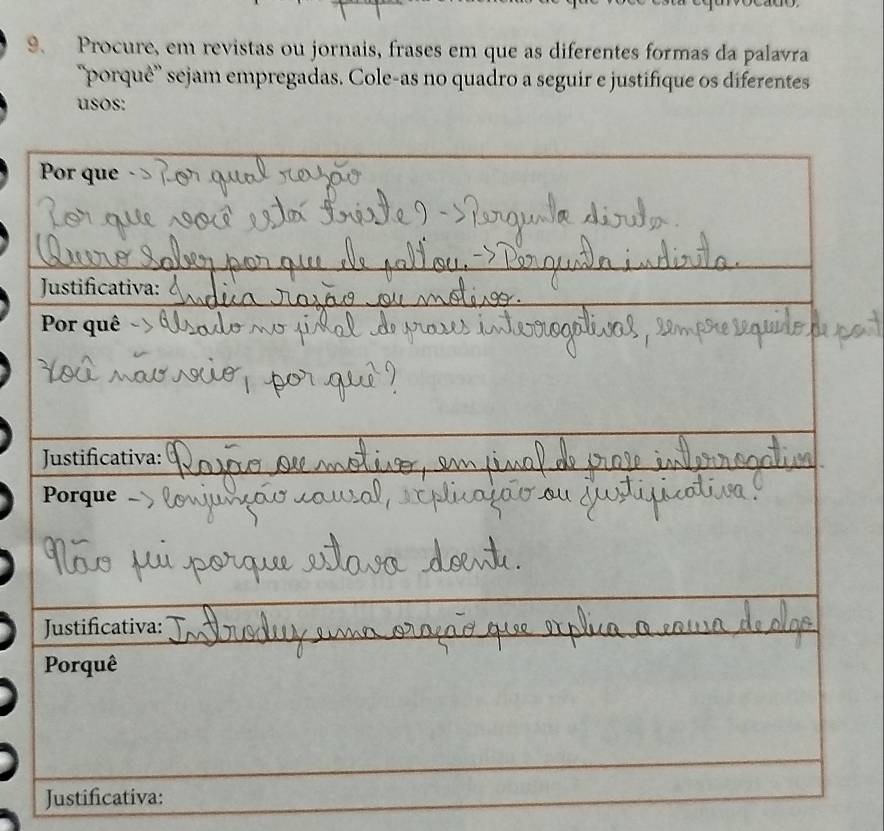 9. Procure, em revistas ou jornais, frases em que as diferentes formas da palavra
"porquê" sejam empregadas. Cole-as no quadro a seguir e justifique os diferentes
usos:
Por que -> Por qual razão
Por que você está triste? -> Pergunta direta.
Quero saber por que ele faltou. -> Pergunta indireta.
Justificativa: Indica razão ou motivo.
Por quê -> Usado no final de frases interrogativas, sempre seguido de pont
Você não veio, por quê?
Justificativa: Razão ou motivo, em final de frase interrogativa.
Porque -> Conjunção causal, explicação ou justificativa.
Não fui porque estava doente.
Justificativa: Introduz uma oração que explica a causa de algo
Porquê
Justificativa: